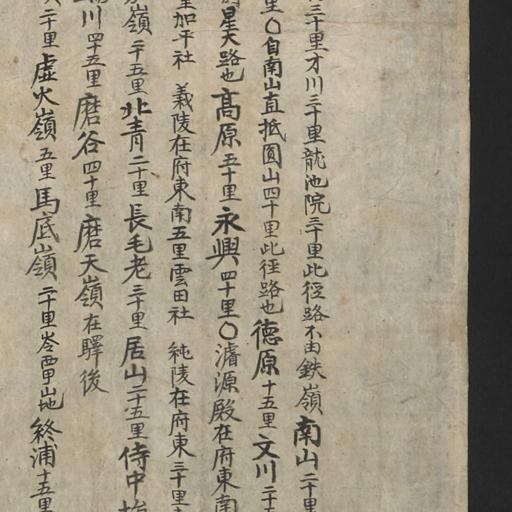 三十里才川三十里龍池院三十里此徑路不由鉄嶺南山二十里
里〇自南山直抵圓山四十里此徑路也德原十五里文川二十五
星天路也高原五十里永興四十里〇濬源殿在府東南
里加平社 義陵在府東南五里雲田社 純陵在府東三十里
嶺二十五里北青二十里長毛老三十里居山二十五里侍中
川四十五里磨谷四十里磨天嶺在驛後
二十里虛火嶺五里馬底嶺二十里岑 地終浦十五里